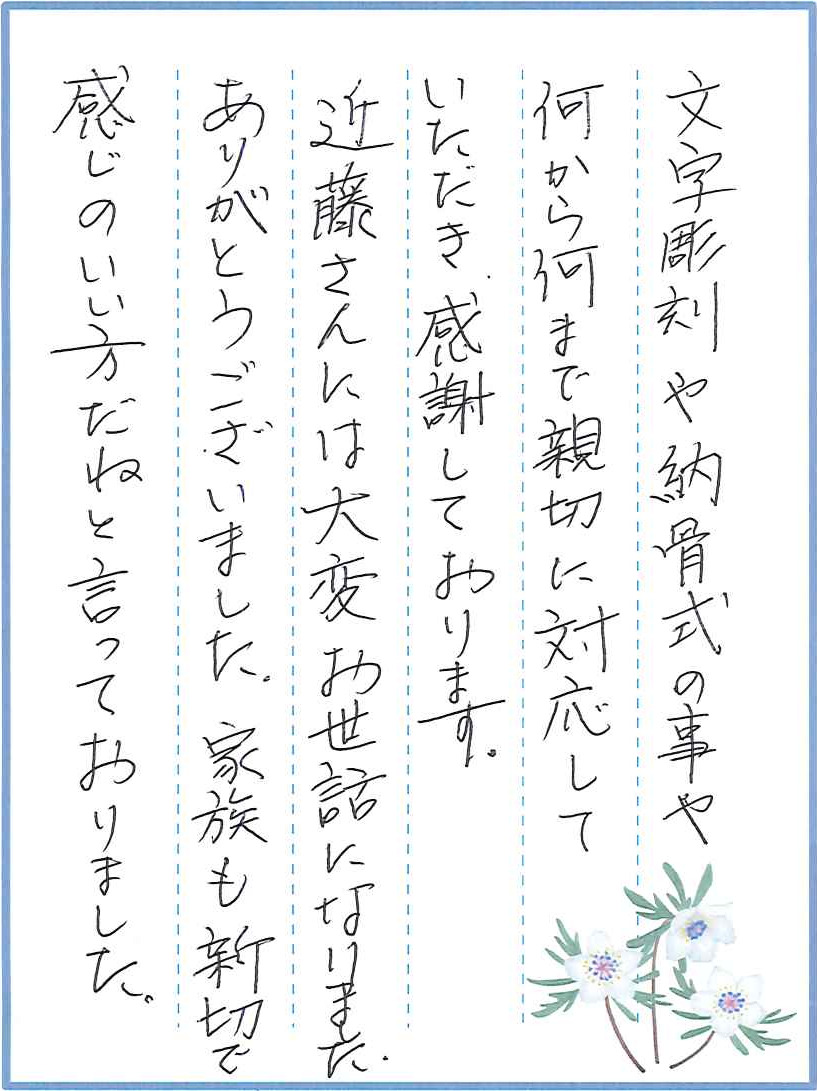 文字彫刻や納骨式の事や
何から何まで親切に対応して
いただき、感謝しております。
近藤さんには大変お世話になりました。
ありがとうございました。家族も新切で
感じのいい方だねと言っておりました。